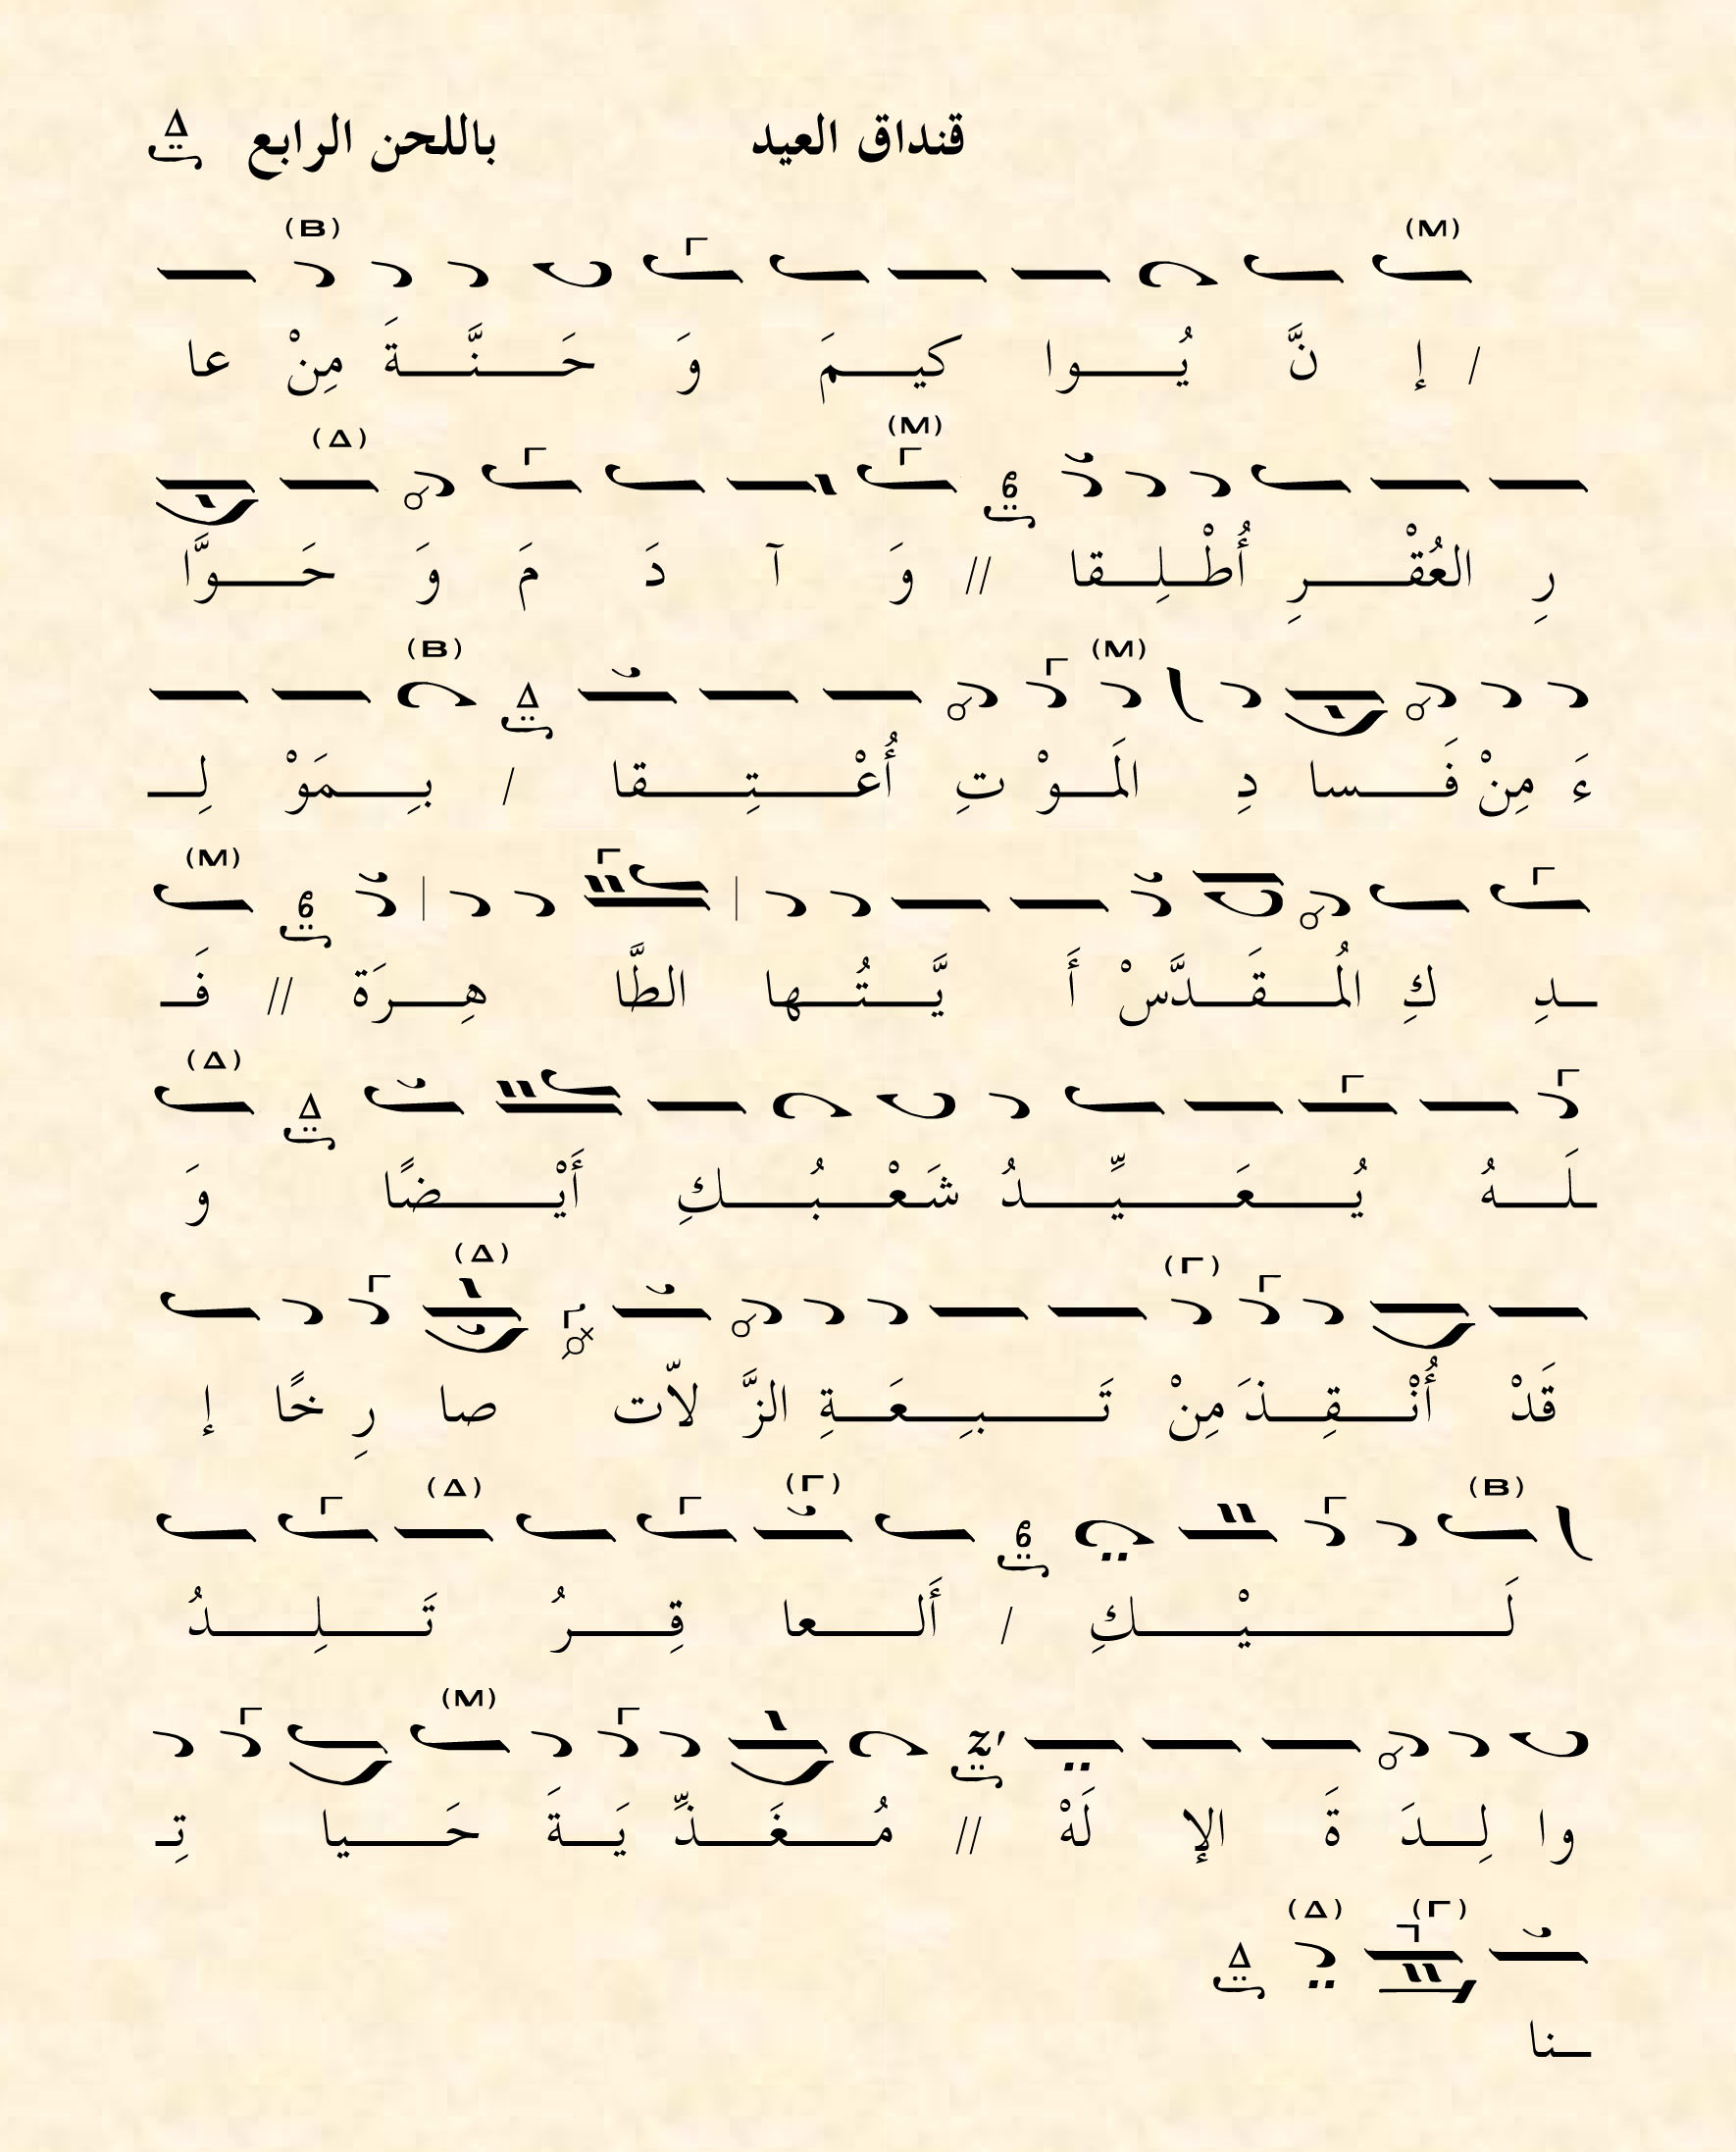 قنداق العيد باللحن الرابع
/ إ نَّ يُـــوا كيـــمَ وَ حَـــنَّـــةَ مِنْ عا
رِ العُقْـــرِ أُطْـــلِـــقا // وَ آ دَ مَ وَ حَـــوَّا
ءَ مِنْ فَـــسا دِ المَـــوْ تِ أُعْـــتِـــقا / بِـــمَوْ لِـ
ـدِ كِ المُـــقَـــدَّسْ أَ يَّـــتُـــها الطَّا هِـــرَة // فَـ
ـلَـــهُ يُـــعَـــيِّـــدُ شَعْـــبُـــكِ أَيْـــضًا وَ
قَدْ أُنْـــقِـــذَ مِنْ تَـــبِـــعَـــةِ الزَّ لاّت صا رِ خًا إ
لَـــيْـــكِ / أَلـــعا قِـــرُ تَـــلِـــدُ
وا لِـــدَ ةَ الإ لَهْ // مُـــغَـــذِّ يَـــةَ حَـــيا تِـ
ـنا